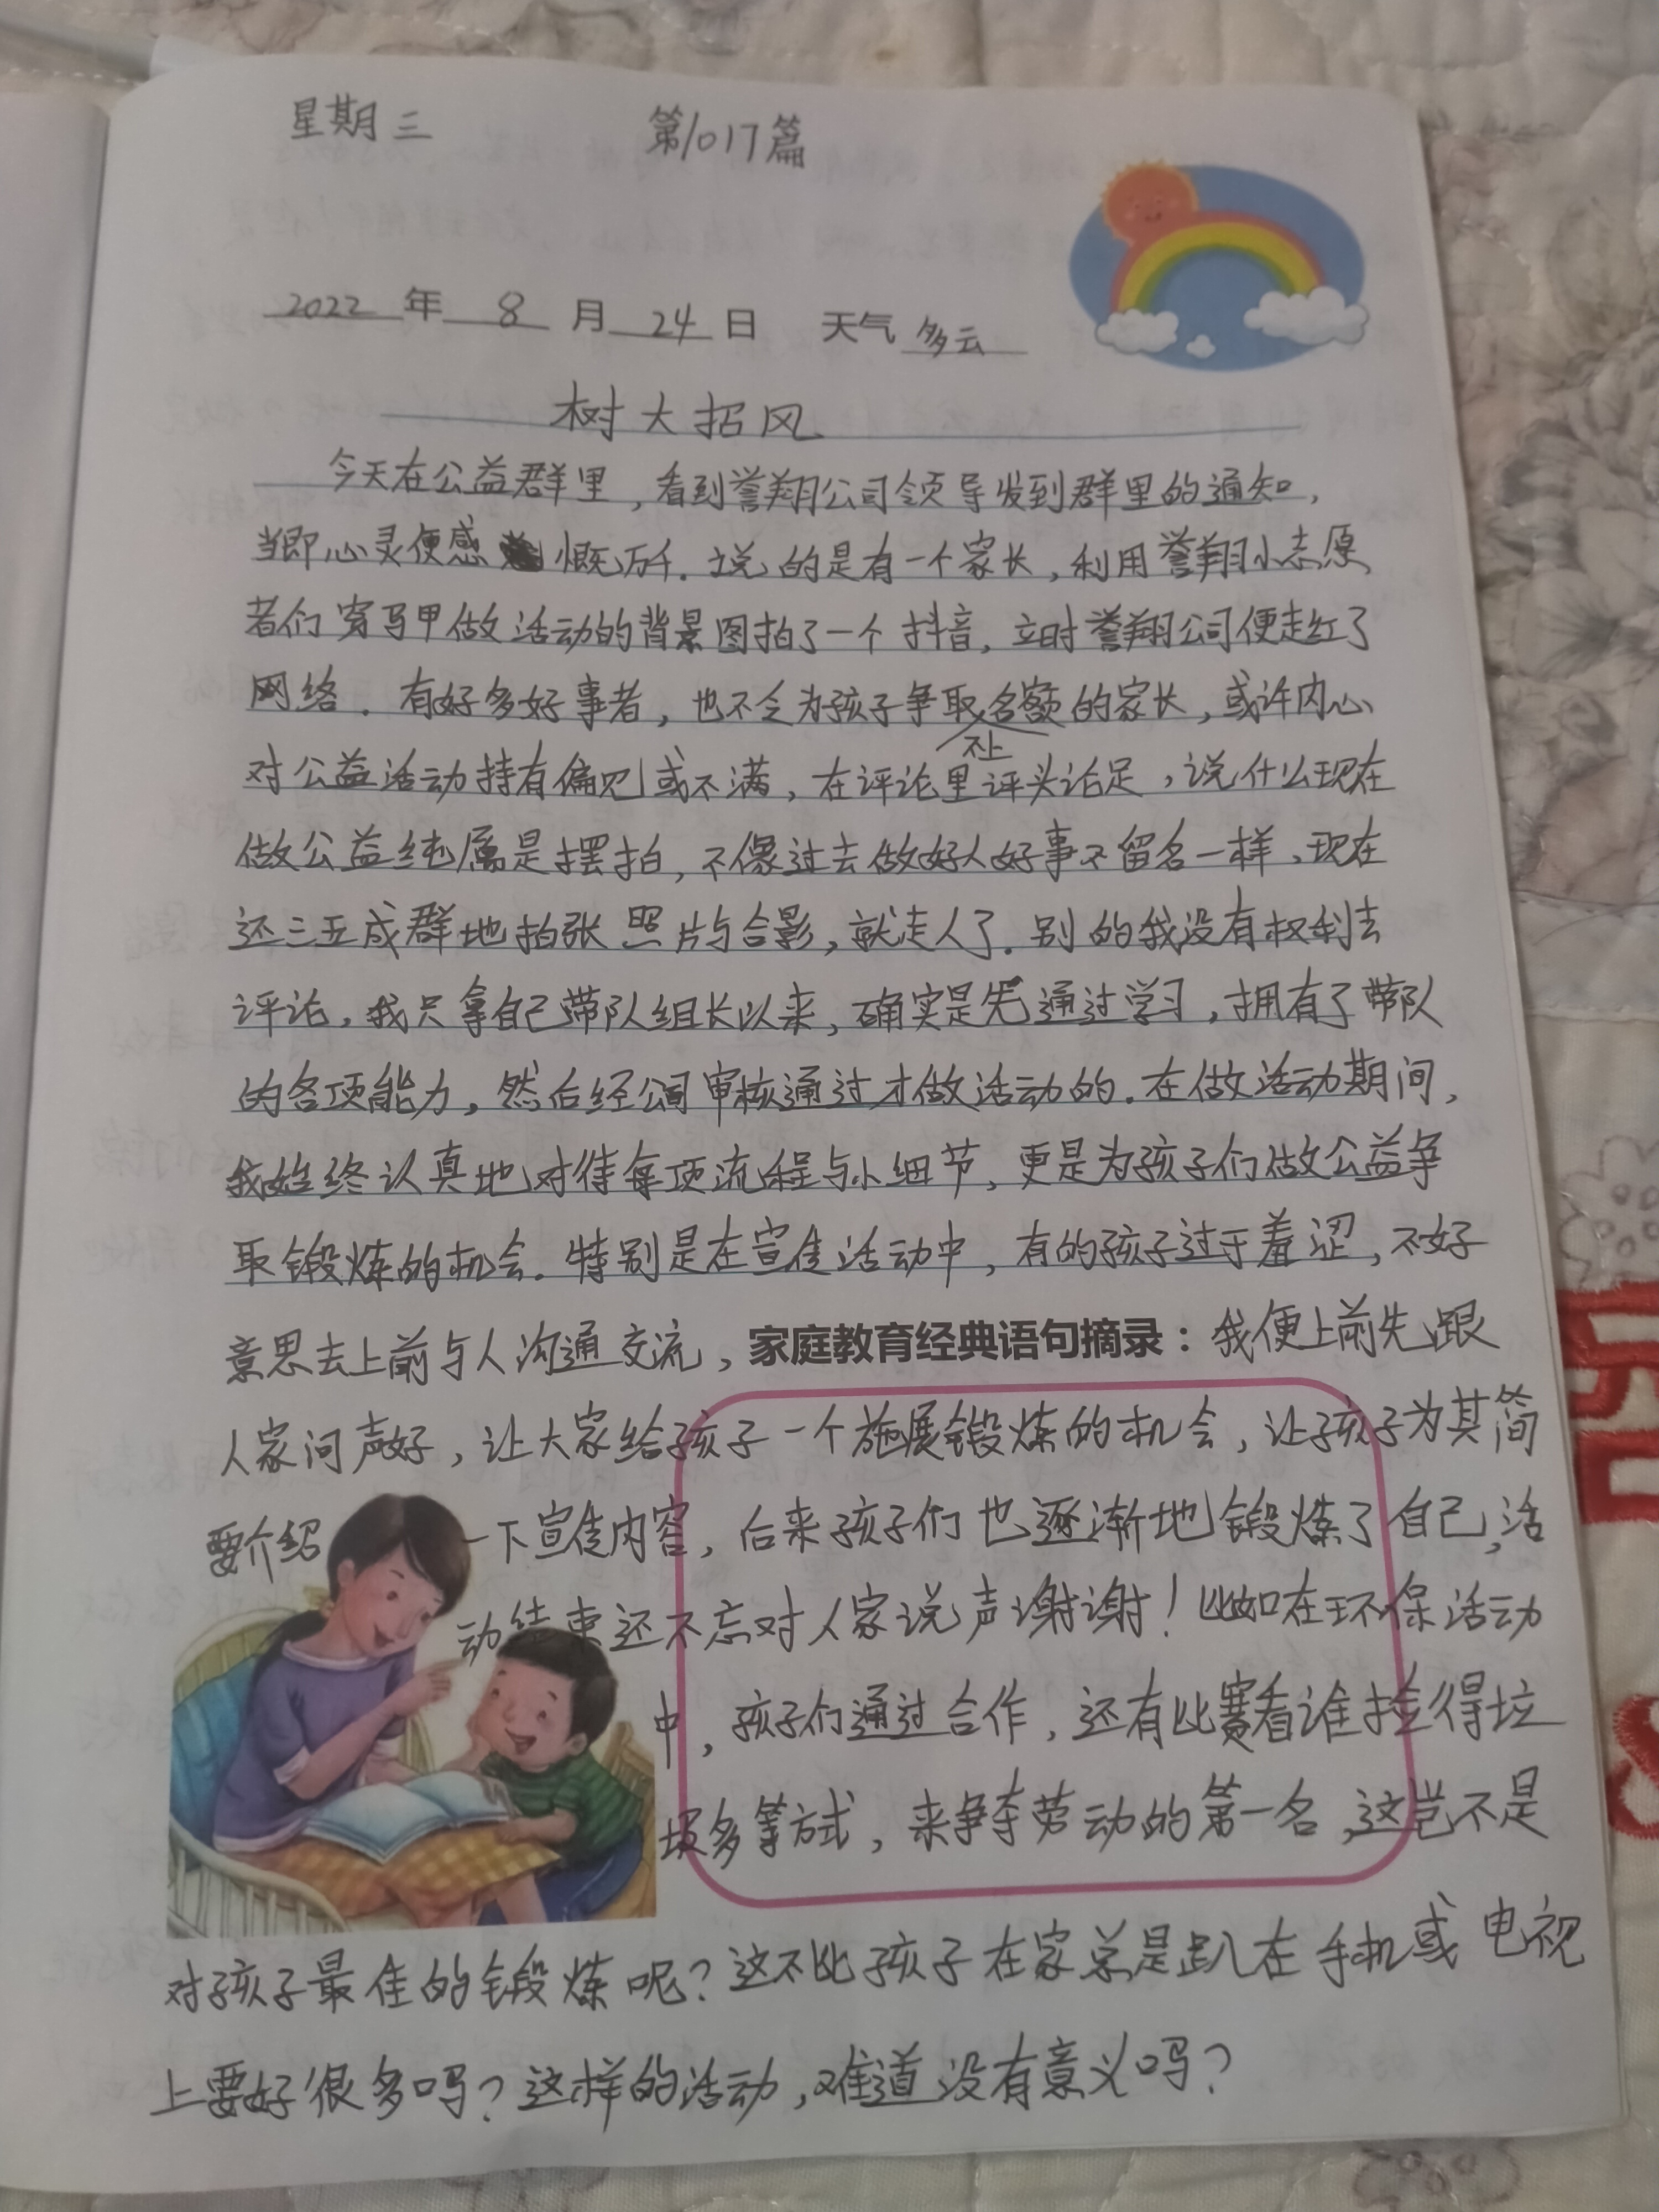 星期三 第1017篇
2022年8月24日 天气多云
树大招风
今天在公益群里，看到誉翔公司领导发到群里的通知，
当即心灵便感慨万千．说的是有一个家长，利用誉翔小志愿
者们穿马甲做活动的背景图拍了一个抖音，立时誉翔公司便走红了
网络．有好多好事者，也不会为孩子争取不上名额的家长，或许内心
对公益活动持有偏见或不满，在评论里评头论足，说什么现在
做公益纯属是摆拍，不像过去做好人好事不留名一样、现在
还三五成群地拍张照片与合影，就走人了．别的我没有权利去
评论，我只拿自己带队组长以来，确实是先通过学习，拥有了带队
的各项能力，然后经公司审核通过才做活动的．在做活动期间，
我始终认真地对待每项流程与小细节，更是为孩子们做公益争
取锻炼的机会．特别是在宣传活动中，有的孩子过于羞涩，不好
意思去上前与人沟通交流，家庭教育经典语句摘录：我便上前先跟
人家问声好，让大家给孩子一个施展锻炼的机会，让孩子为其简
要介绍一下宣传内容，后来孩子们也逐渐地锻炼了自己，活
动结束还不忘对人家说声谢谢！比如在环保活动
中，孩子们通过合作，还有比赛看谁捡得垃
圾多等方式，来争夺劳动的第一名，这岂不是
对孩子最佳的锻炼呢？这不比孩子在家总是趴在手机或电视
上要好很多吗？这样的活动，难道没有意义吗？